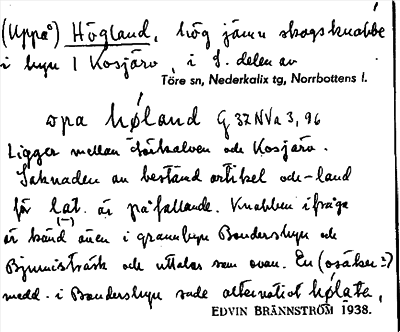 (Uppå) Högland, hög jämn skogsknabbe
i byn 1 Kosjärv, i S. delen av
Töre sn, Nederkalix tg, Norrbottens l.
ɷpa høland G 37 NVa 3, 96
Ligger mellan och Kosjärv.
Saknaden av bestämd artikel och -land
för lat. är påfallande. Knabben ifråga
(-)
är känd även i grannbyn Bondersbyn och
Bjumisträsk och uttalas som ovan. En (osäker?)
medd. i Bondersbyn sade alternativt hølate,
EDVIN BRÄNNSTRÖM 1938.